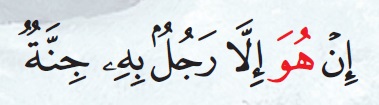 إِنۡ هُوَ إِلَّا رَجُلُۢ بِهِۦ جِنَّةٞ